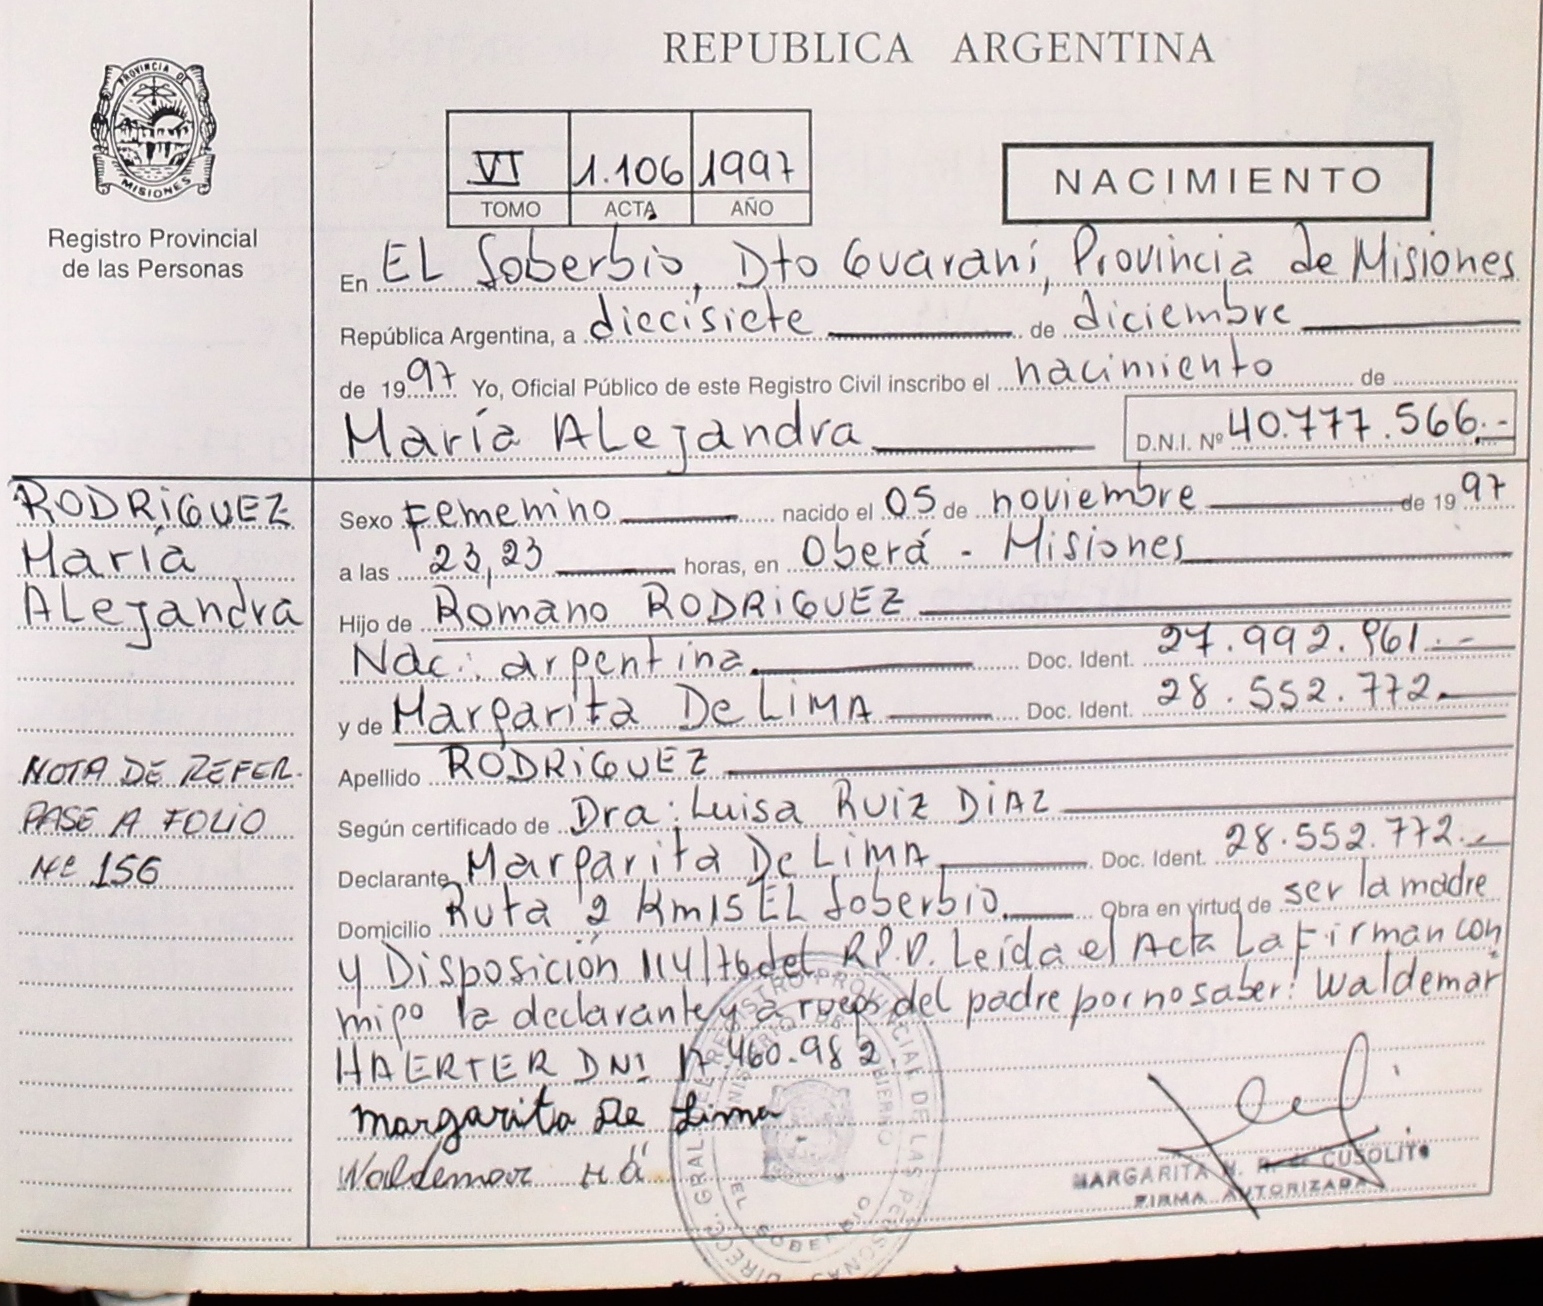 REPUBLICA ARGENTINA
PROVINCIA DE MISIONES
Registro Provincial
de las Personas
VI 1.106 1997
TOMO ACTA AÑO
NACIMIENTO
En EL Soberbio, Dto Guaraní, Provincia de Misiones
República Argentina, a diecisiete de diciembre
de 1997 Yo, Oficial Público de este Registro Civil inscribo el nacimiento de
María ALejandra D.N.I. Nº 40.777.566.-
RODRíGUEZ
María
ALejandra
NOTA DE REFER.
PASE A FOLIO
Nº 156
Sexo Femenino nacido el 05 de noviembre de 1997
a las 23,23 horas, en Oberá - Misiones
Hijo de Romano RODRIGUEZ
Nac.: argentina Doc. Ident. 27.992.961.-
y de Margarita De LIMA Doc. Ident. 28.552.772.
Apellido RODRIGUEZ
Según certificado de Dra: Luisa RUIZ DIAZ
Declarante Margarita De LIMA Doc. Ident. 28.552.772.-
Domicilio Ruta 2 Km 15 EL Soberbio. Obra en virtud de ser la madre
y Disposición 114/76 del R.P.P. Leída el Acta La Firman con
migo la declarante y a ruego del padre por no saber: Waldemar
HAERTER DNI 17.460.982.
Margarita De Lima
Waldemar Hä
MARGARITA N. R. de CUSOLITO
FIRMA AUTORIZADA
DIRECC. GRAL. DEL REGISTRO PROVINCIAL DE LAS PERSONAS
MINISTERIO DE GOBIERNO
EL SOBERBIO